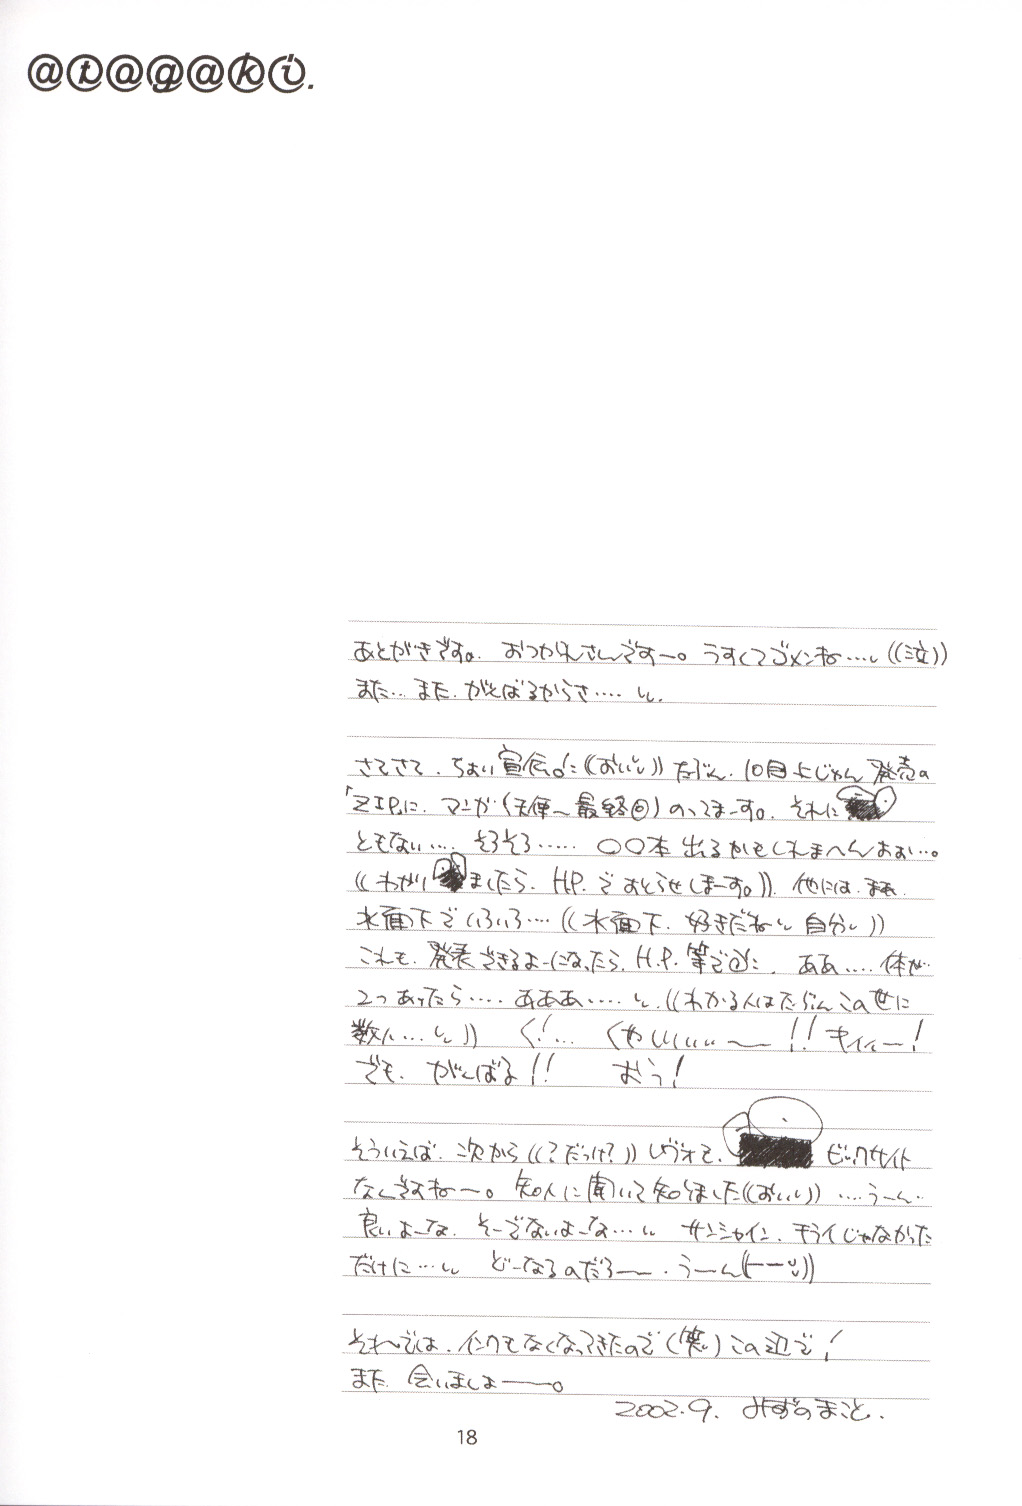 @t@g@ki.
あとがきです。おつかれさんですー。うすくてゴメンね…、((泣))
また… また、がんばるからさ……、
さてさて、ちょい宣伝。((おいし)) たぶん、10月上じゅん発売の
「ZIP」に、マンガ(天使〜最終回)のってまーす。それに
ともない…、そろそろ…… ○○本 出るかもしれまへんおぉ…。
((わかりましたら、H.P.でおしらせしまーす。)) 他には、まぁ、
水面下でいろいろ…((水面下、好きだねい 自分い))
これも、発表できるよーになったら、H.P.等で。ああ…、体が
2つあったら…… あああ……、((わかる人はたぶんこの世に
数人…い)) く!… くやしいぃぃ〜!! キィィー!
でも、がんばる!! おう!
そういえば、次から((?だっけ?)) レヴォて、ビックサイト
なんですよねー。知人に聞いて知りました((おいい)) …うーん…
良いよーな、そーでないよーな…い サンシャイン、キライじゃなかった
だけに…い どーなるのだろー、うーん
それでは、インクもなくなってきたので(笑)この辺で!
また、会いましょーー。
2002.9. みずのまこと.
18